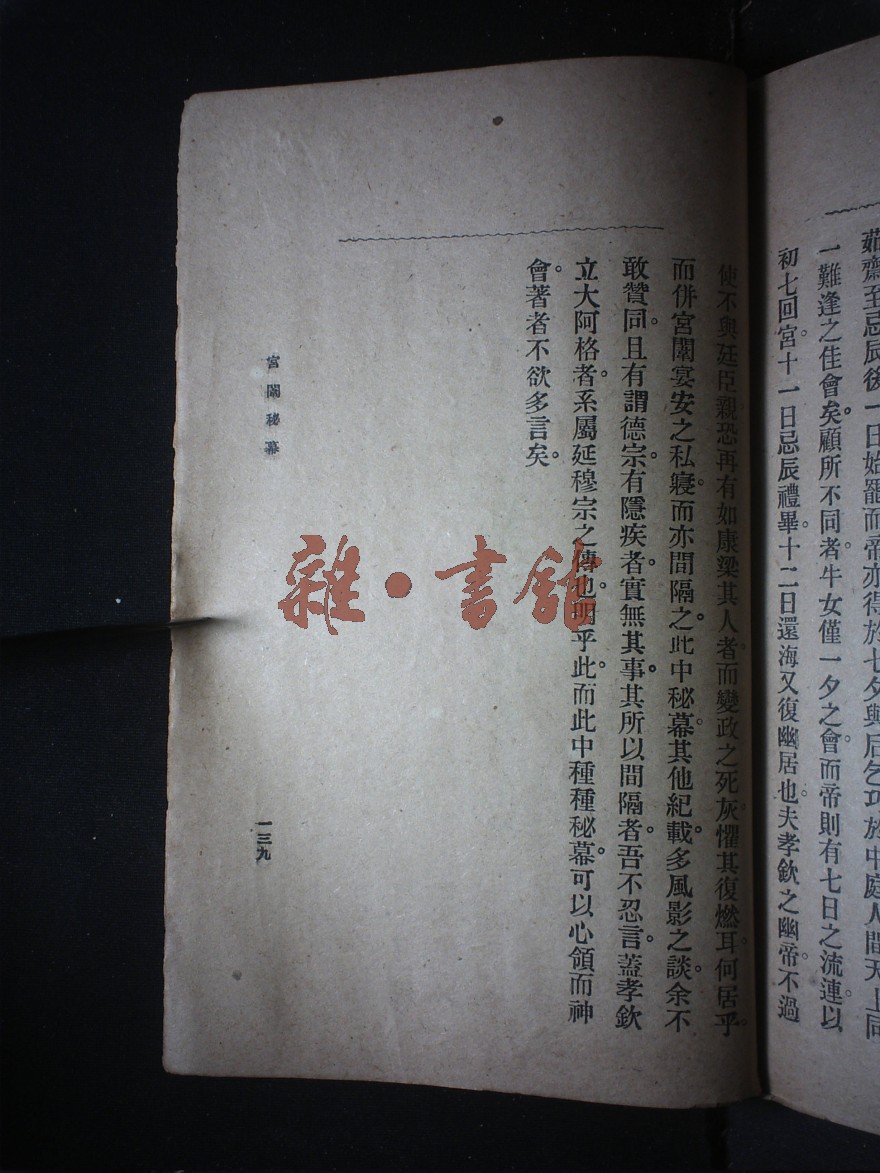 茹齋至忌辰後一日始罷而帝亦得於七夕與后乞巧於中庭人間天上同
一難逢之佳會矣。顧所不同者牛女僅一夕之會。而帝則有七日之流連。以
初七回宮十一日忌辰禮畢。十二日還海又復幽居也。夫孝欽之幽帝。不過
使不與廷臣親恐再有如康梁其人者。而變政之死灰。懼其復燃耳。何居乎。
而併宮闈宴安之私寢。而亦間隔之。此中秘幕。其他紀載。多風影之談。余不
敢贊同。且有謂德宗。有隱疾者。實無其事。其所以間隔者。吾不忍言。蓋孝欽
立大阿格者。系屬延穆宗之傳也。明乎此。而此中種種秘幕。可以心領而神
會。著者不欲多言矣。
宮闈秘幕
一三九
雜·書館